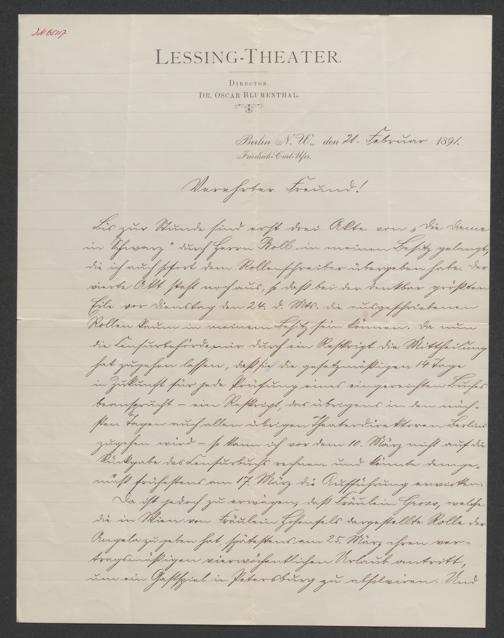 LESSING-THEATER.
DIRECTOR:
DR. OSCAR BLUMENTHAL.
Berlin N. W., den 20. Februar 1891.
Friedrich-Carl-Ufer.
Verehrter Freund!
Bis zur Stunde sind erst drei Akte von „Die Dame
in Schwarz" durch Herrn Kolb in meinen Besitz gelangt,
die ich auch sofort dem Rollenschreiber übergeben habe. Der
vierte Akt steht noch aus, so daß bei der denkbar größten
Eile vor Dienstag den 24. d. Mts. die ausgeschriebenen
Rollen kaum in meinem Besitz sein können. Da nun
die Censurbehörde mir durch ein Reskript die Mittheilung
hat zugehen lassen, daß sie die gesetzmäßigen 14 Tage
in Zukunft für jede Prüfung eines eingereichten Buches
beansprucht – ein Reskript, das übrigens in den näch-
sten Tagen auch allen übrigen Theaterdirektionen Berlins
zugehen wird – so kann ich vor dem 10. März nicht auf die
Rückgabe des Censurbuchs rechnen und könnte demge-
mäß frühestens am 17. März die Aufführung
Da ist jedoch zu erwägen, daß Fräulein welche
die in Wien von Fräulein Hohenfels dargestellte Rolle der
Angela zu geben hat, spätestens am 25. März ihren ver-
tragsmäßigen vierwöchentlichen Urlaub antritt,
um ein Gastspiel in Petersburg zu absolviren. Und